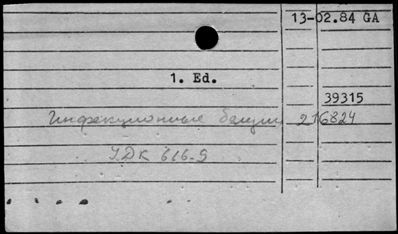 13-02.84 GA
1. Ed.
39315
Инфекционные 216824
УДК 616-9